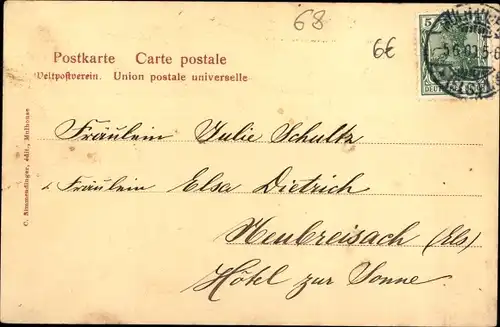 68
6€
5
Postkarte Carte postale
Weltpostverein. Union postale universelle
C. Simmendinger, édit., Mulhouse
Fräulein Julie Schultz
Fräulein Elsa Dietrich
Neubreisach (Els)
Hôtel zur Sonne.